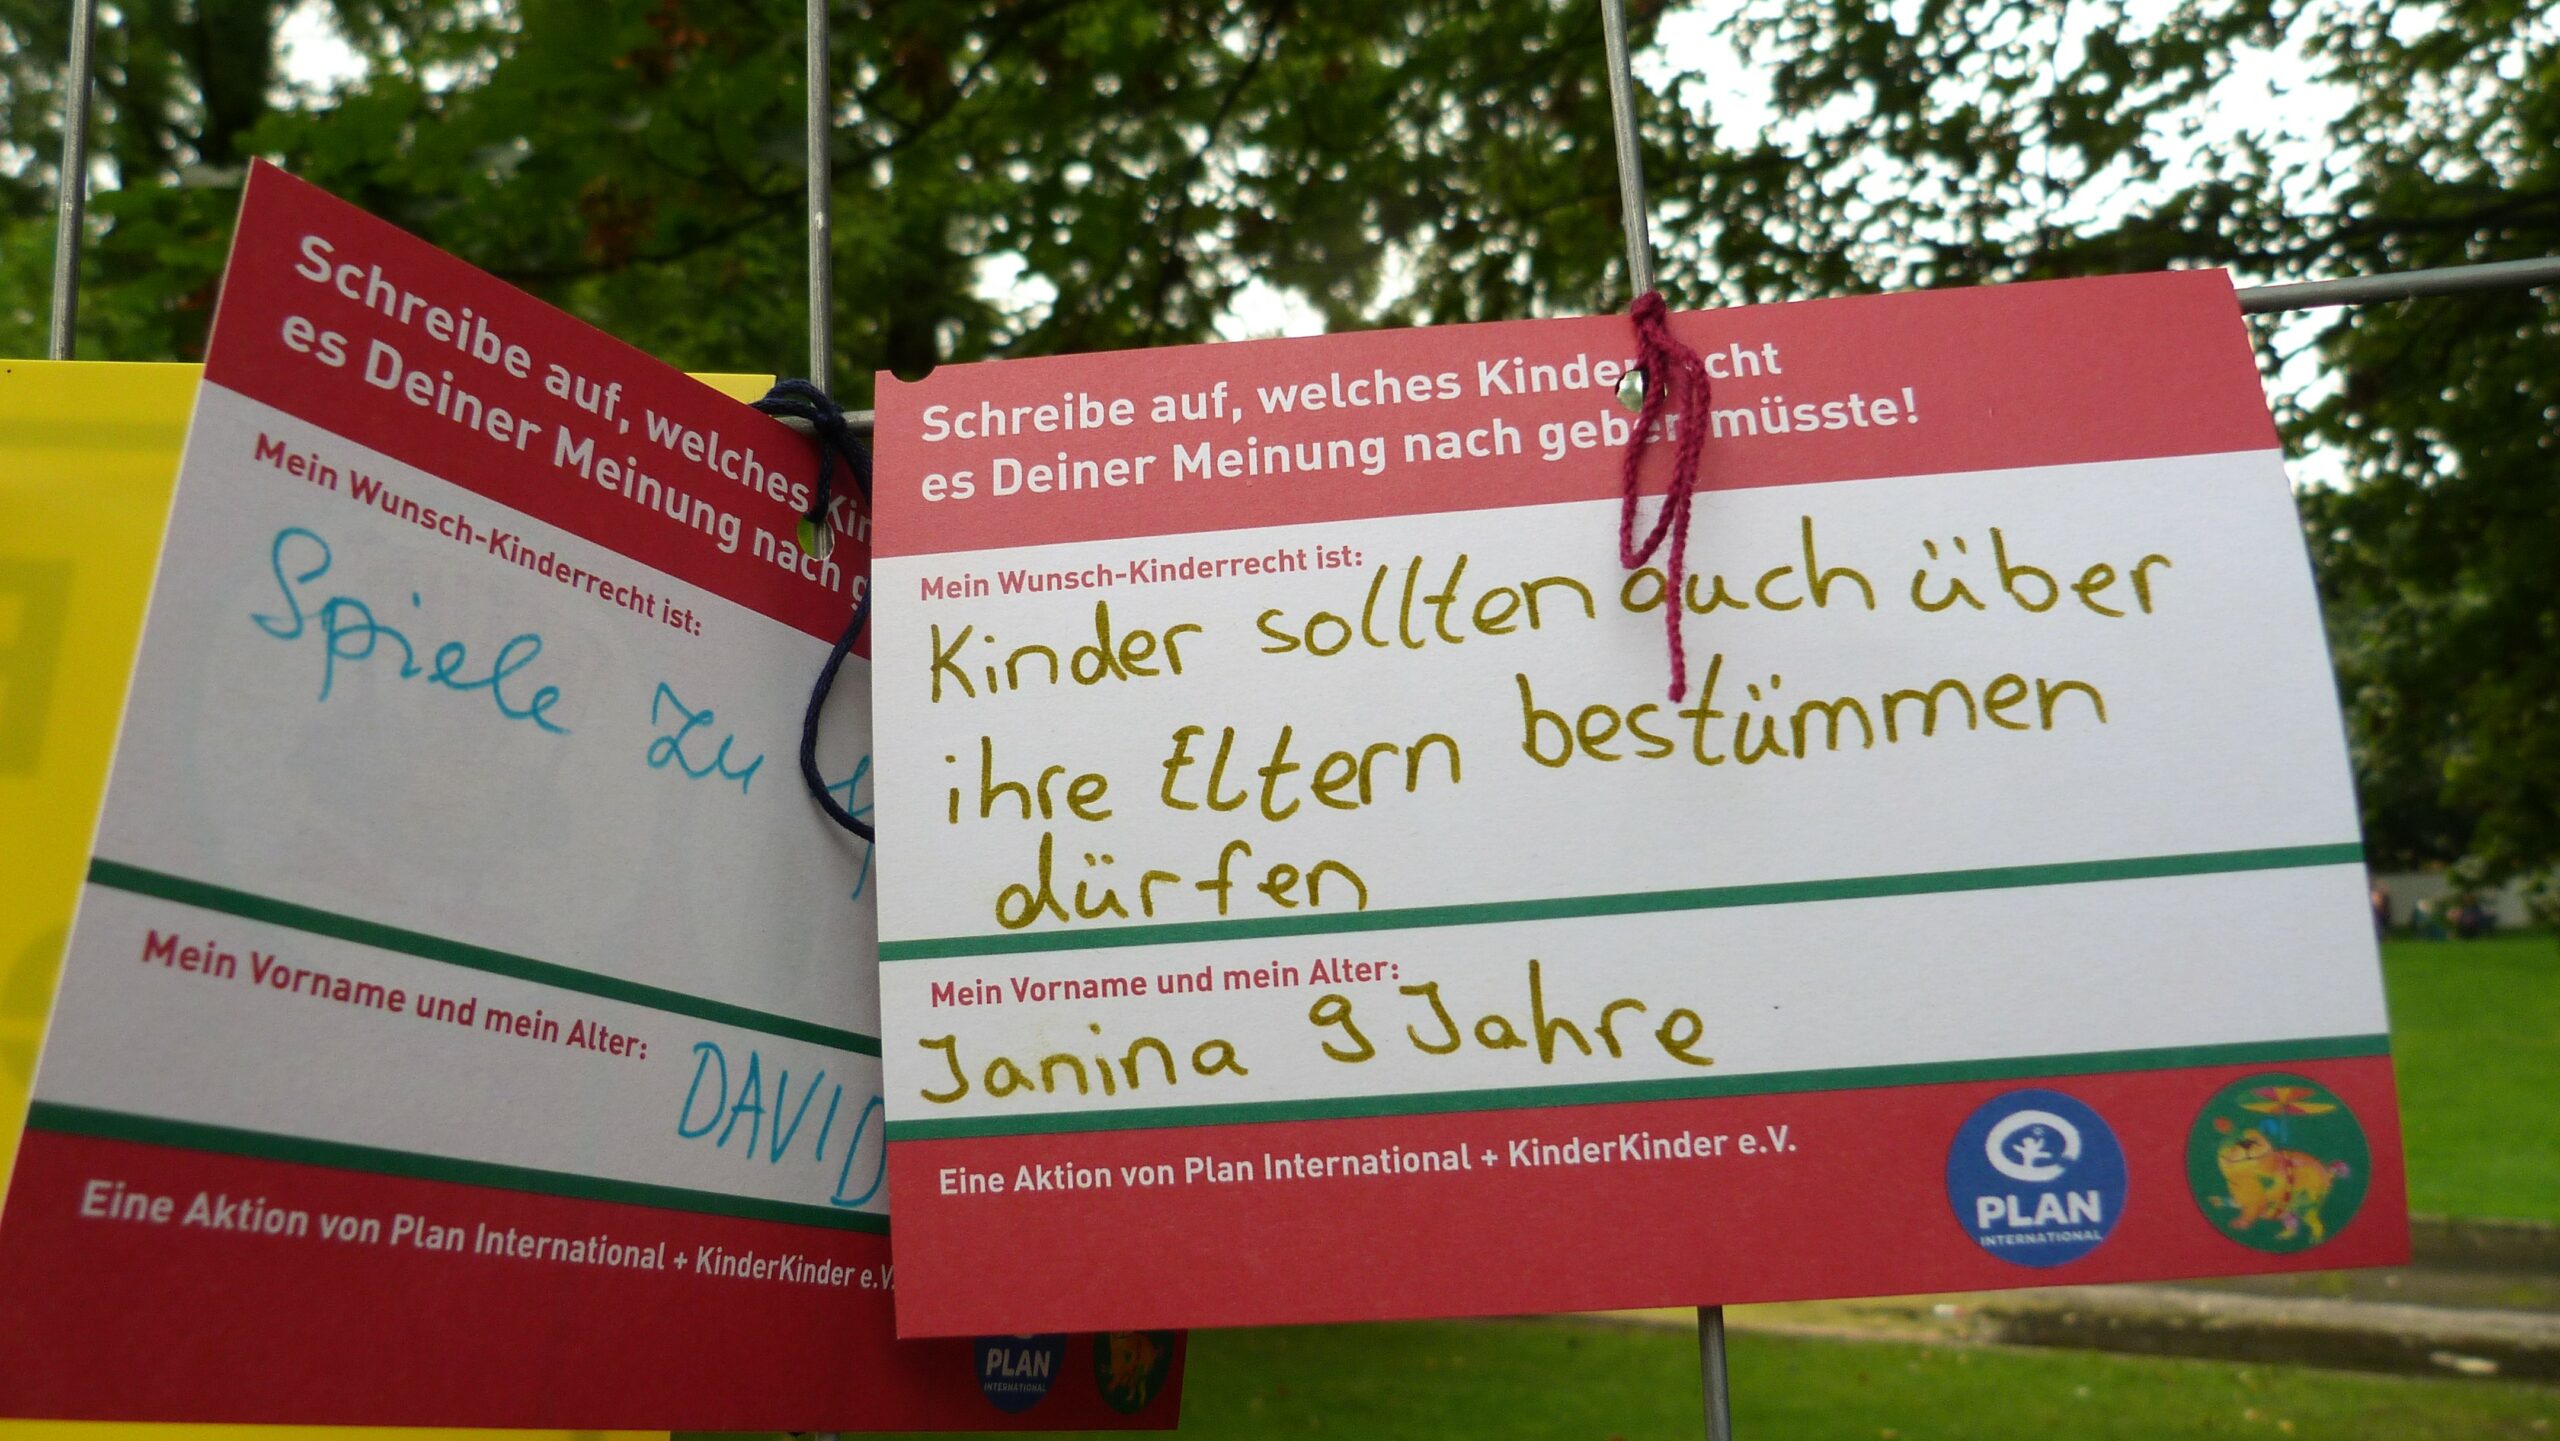 Schreibe auf, welches
es Deiner Meinung nach
Mein Wunsch-Kinderrecht ist:
Spiele zu
Mein Vorname und mein Alter:
DAVID
Eine Aktion von Plan International + KinderKinder e.V.
PLAN
INTERNATIONAL
Schreibe auf, welches Kinderrecht
es Deiner Meinung nach geben müsste!
Mein Wunsch-Kinderrecht ist:
Kinder sollten auch über
ihre Eltern bestümmen
dürfen
Mein Vorname und mein Alter:
Janina 9 Jahre
Eine Aktion von Plan International + KinderKinder e.V.
PLAN
INTERNATIONAL